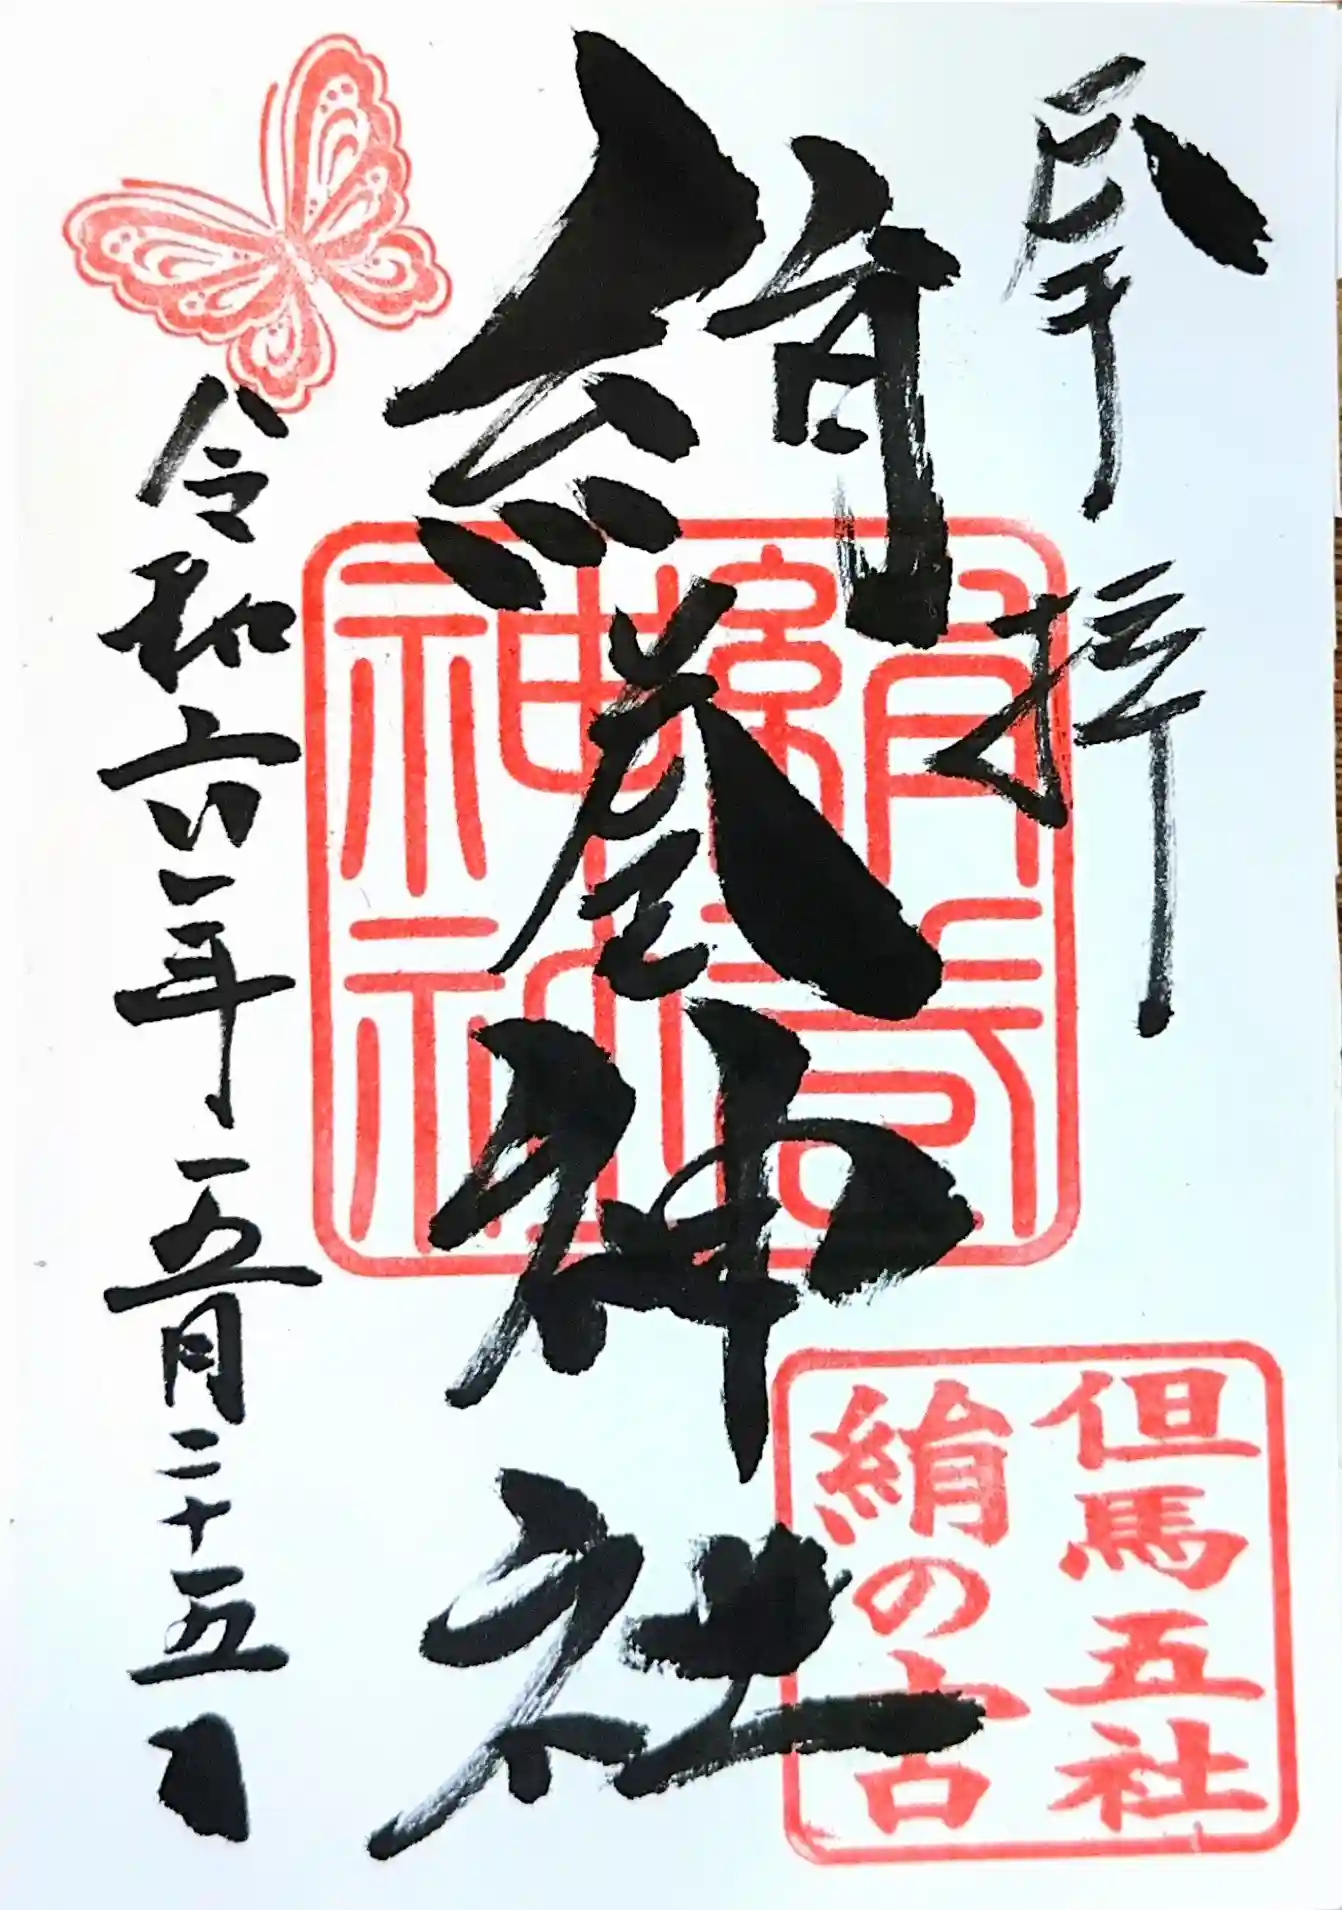 奉拝
絹巻神社
絹巻
神社
但馬五社
絹の宮
令和六年五月二十五日